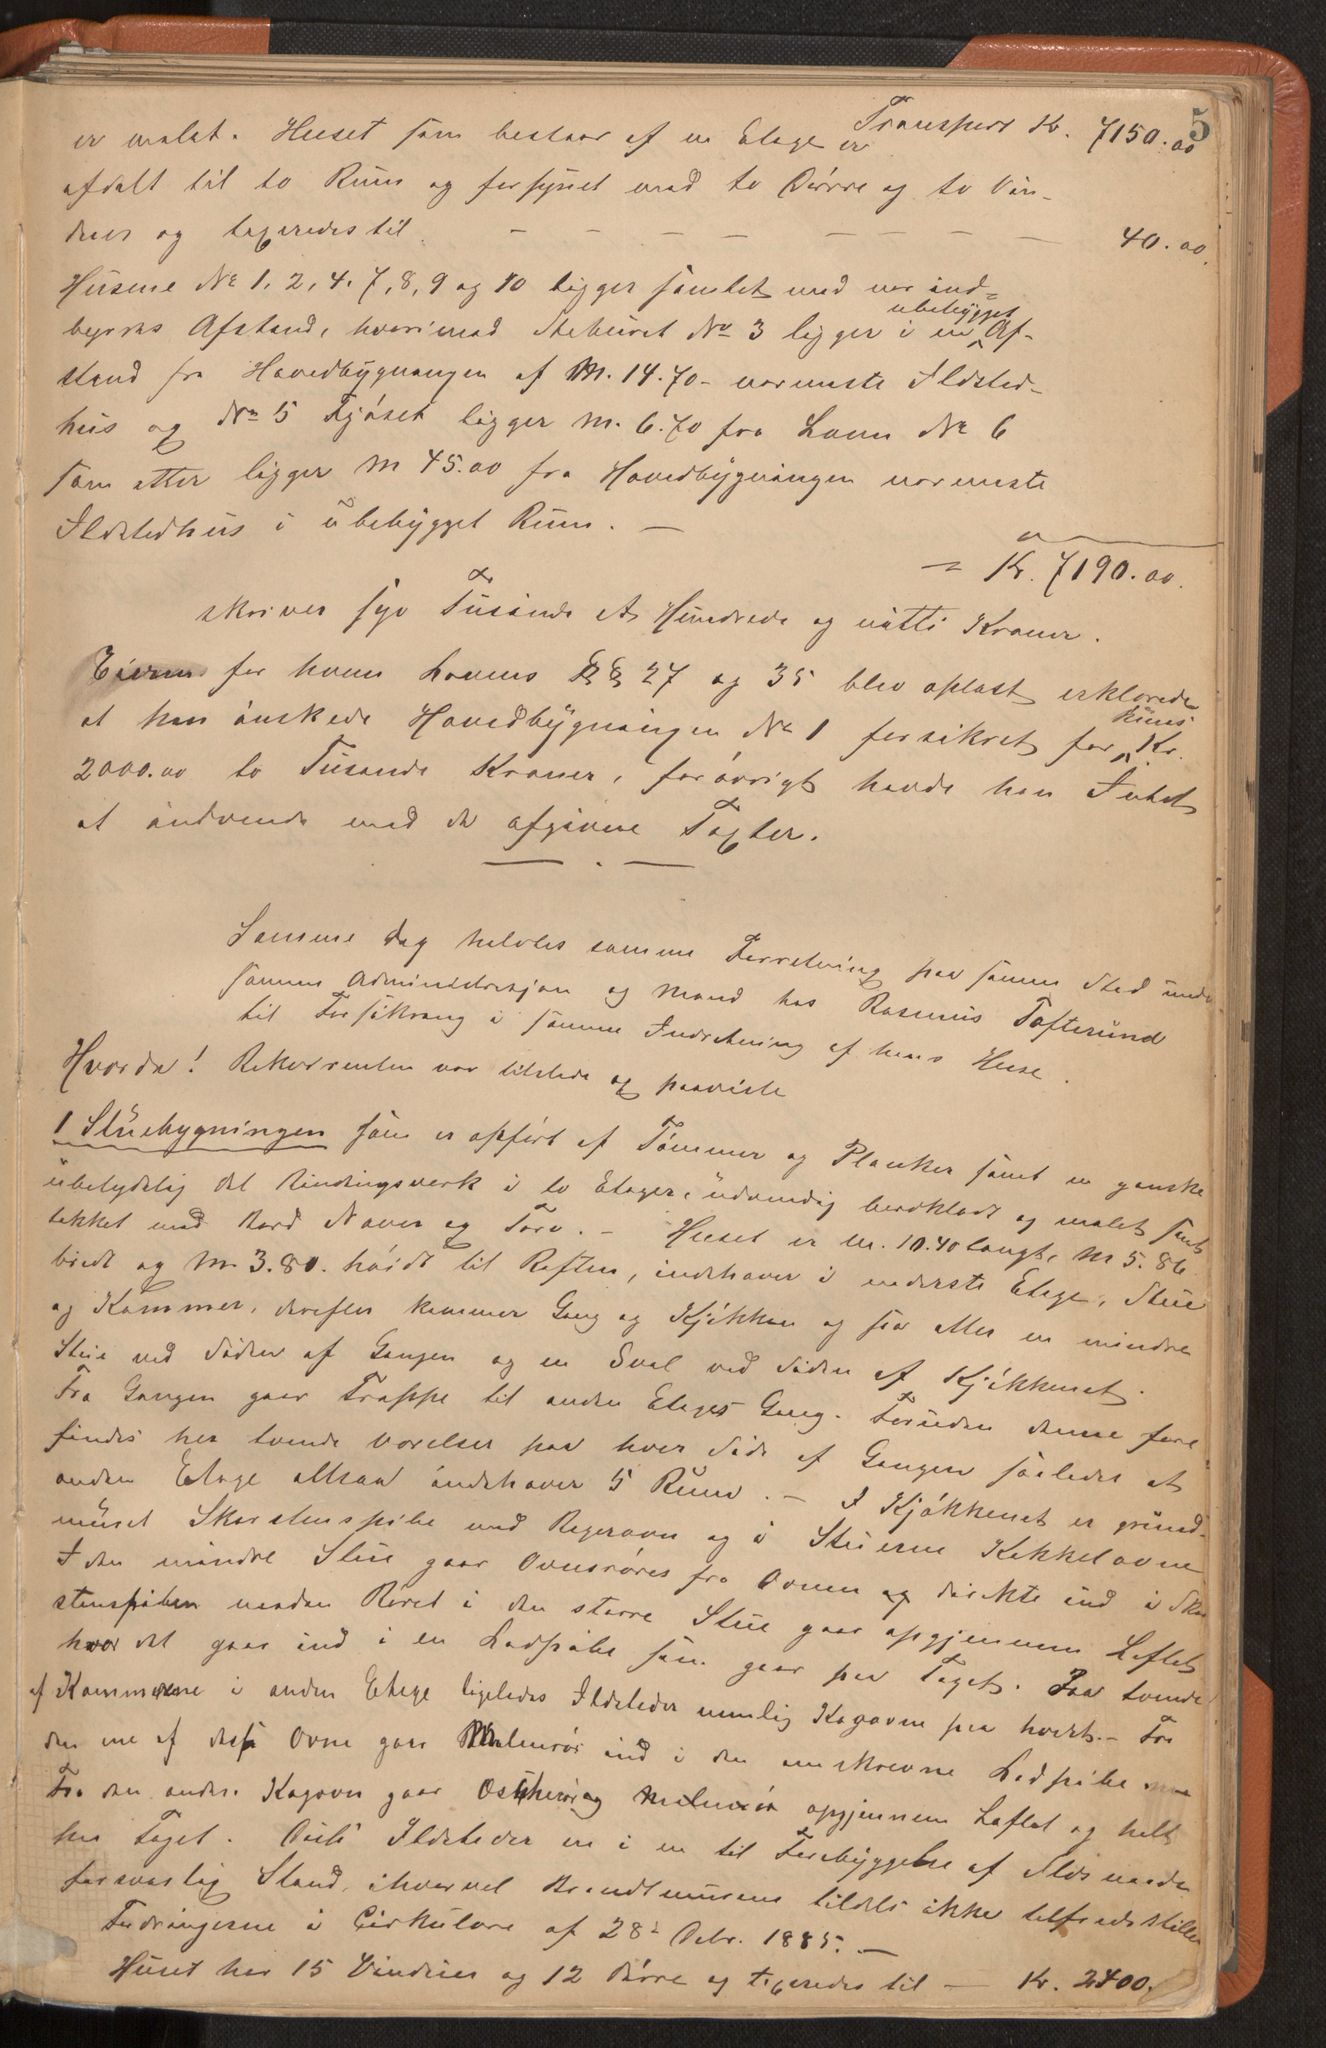 5
Transport Kr. 7150.00
er malet. Huset som bestaar af en Etage er
afdelt til to Rum og forsynet med to Dørre og to Vin-
duer og taxeredes til — — — — — — — 40.00.
Husene No 1, 2, 4, 7, 8, 9 og 10 ligger samlet med nær ind-
byrdes Afstand, hvorimod Steburet No 3 ligger i en ubebygget Af-
stand fra Hovedbygningen af M. 14.70 - nærmeste Ildsted-
hus og No 5 Fjøset ligger M. 6.70 fra Laaen No 6
som atter ligger M 45.00 fra Hovedbygningen nærmeste
Ildstedhus i ubebygget Rum. —
= Kr. 7190.00.
skriver syv Tusinde et Hundrede og nitti Kroner.
Eieren for hvem Lovens §§ 27 og 35 blev oplæst erklærede
at han ønskede Hovedbygningen No 1 forsikret for kuns Kr.
2000.00 to Tusende Kroner, forøvrigt havde han Intet
at indvende mod de afgivne Taxter.
— . —
Samme Dag holdtes samme Forretning paa samme Sted under
samme Administrasjon og Mænd hos Rasmus Toftesund
til Forsikring i samme Indretning af hans Huse.
Hvorda! Rekvirenten var tilstede og paaviste
1 Stuebygningen som er opført af Tømmer og Planker samt en ganske
ubetydelig Del Bindingsverk i to Etager, udvendig bordklædt og malet samt
tækket med Bord Næver og Torv. — Huset er M. 10.40 langt, M 5.86
bredt og M. 3.80. høidt til Raften, indehaver i nederste Etage, Stue
og Kammer, derefter kommer Gang og Kjøkken og saa atter en mindre
Stue ved Siden af Gangen og en Sval ved Siden af Kjøkkenet.
Fra Gangen gaar Trappe til anden Etages Gang. Foruden denne fore
findes her tvende Værelser paa hver Side af Gangen saaledes at
anden Etage altsaa indehaver 5 Rum. — I Kjøkkenet er grund-
muret Skorstenspibe med Bagerovn og i Stuerne Kakkelovne
I den mindre Stue gaar Ovnsrøret fra Ovnen og direkte ind i Skor
stenspiben medan Røret i den større Stue gaar opgjennem Loftet
hvor det gaar ind i en Ledpibe som gaar paa Taget. Paa tvende
af Kammerne i anden Etage ligeledes Ildsteder nemlig Kogovne paa hvert. — Fra
den ene af diss Ovne gaar ind i den omskrevne Ledpibe
Fra den anden Kogovn gaar opgjennem Loftet og helt
paa Taget. Disse Ildsteder er i en til Forebyggelse af Ildsvaade
forsvarlig Stand, ihvorvel Brandmurene tildels ikke tilfredsstiller
Fordringerne i Cirkulære af 28de Debr. 1885. —
Huset har 15 Vinduer og 12 Dørre og taxeredes til — Kr. 2400.